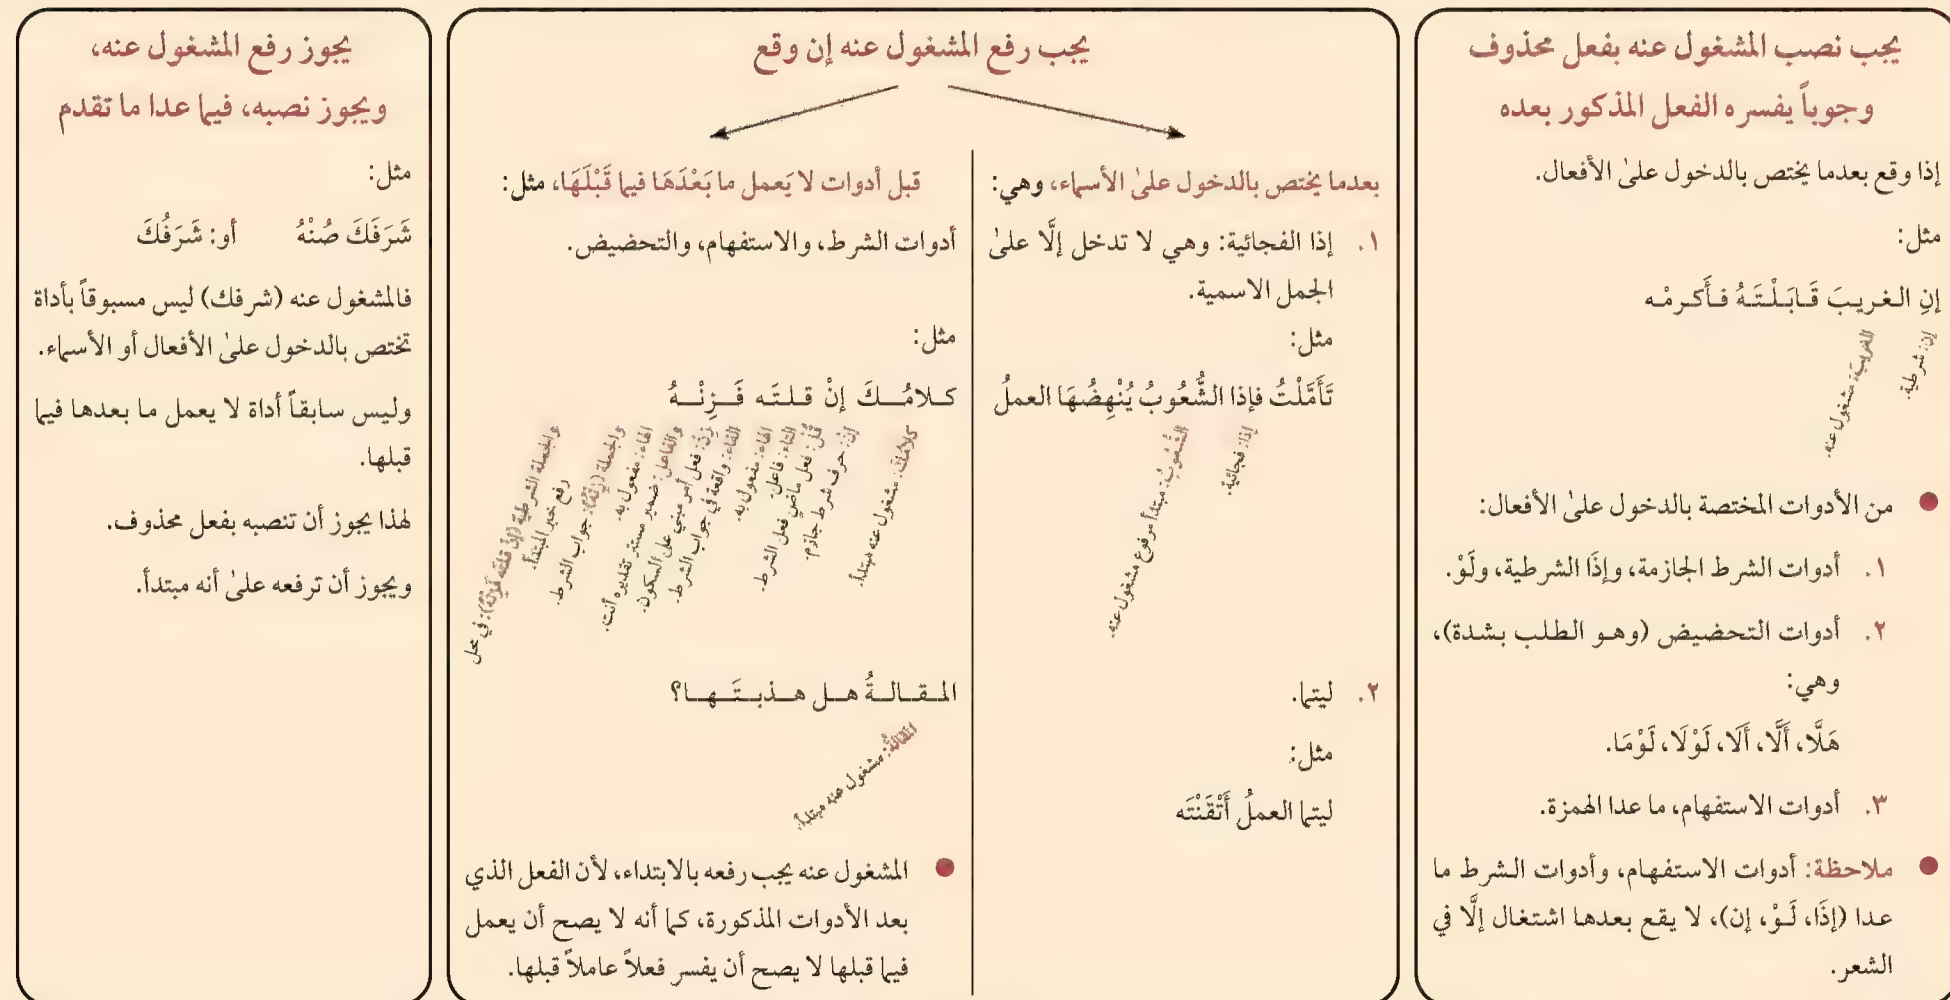 يجب نصب المشغول عنه بفعل محذوف
وجوباً يفسره الفعل المذكور بعده
إذا وقع بعدما يختص بالدخول علىٰ الأفعال.
مثل:
إنِ الغريبَ قَابَلْتَهُ فأَكرمْه
إن: شرطية.
الغريبَ: مشغول عنه.
● من الأدوات المختصة بالدخول علىٰ الأفعال:
١. أدوات الشرط الجازمة، وإذَا الشرطية، ولَوْ.
٢. أدوات التحضيض (وهو الطلب بشدة)،
وهي:
هَلَّا، أَلَّا، أَلَا، لَوْلَا، لَوْمَا.
٣. أدوات الاستفهام، ما عدا الهمزة.
● ملاحظة: أدوات الاستفهام، وأدوات الشرط ما
عدا (إذَا، لَوْ، إن)، لا يقع بعدها اشتغال إلَّا في
الشعر.
يجب رفع المشغول عنه إن وقع
بعدما يختص بالدخول علىٰ الأسماء، وهي:
١. إذا الفجائية: وهي لا تدخل إلَّا علىٰ
الجمل الاسمية.
مثل:
تَأَمَّلْتُ فإذا الشُّعُوبُ يُنْهِضُهَا العملُ
إذا: فجائية.
الشُّعُوبُ: مبتدأ مرفوع مشغول عنه.
٢. ليتما.
مثل:
ليتما العملُ أَتْقَنْتَه
قبل أدوات لا يَعمل ما بَعْدَهَا فيما قَبْلَهَا، مثل:
أدوات الشرط، والاستفهام، والتحضيض.
مثل:
كلامُكَ إنْ قلتَه فَزِنْهُ
كلامُكَ: مشغول عنه مبتدأ.
إنْ: حرف شرط جازم.
قُلْ: فعل ماضي فعل الشرط.
التاء: فاعل.
الهاء: مفعول به.
الفاء: واقعة في جواب الشرط.
زِنْ: فعل أمر مبني على السكون.
والفاعل: ضمير مستتر تقديره أنت.
الهاء: مفعول به.
والجملة (زِنْهُ): جواب الشرط.
والجملة الشرطية (إنْ قلتَه فَزِنْهُ): في محل
رفع خبر المبتدأ.
المقالةُ هل هذبتَها؟
المقالةُ: مشغول عنه مبتدأ.
● المشغول عنه يجب رفعه بالابتداء، لأن الفعل الذي
بعد الأدوات المذكورة، كما أنه لا يصح أن يعمل
فيما قبلها لا يصح أن يفسر فعلاً عاملاً قبلها.
يجوز رفع المشغول عنه،
ويجوز نصبه، فيما عدا ما تقدم
مثل:
شَرَفَكَ صُنْهُ أو: شَرَفُكَ
فالمشغول عنه (شرفك) ليس مسبوقاً بأداة
تختص بالدخول علىٰ الأفعال أو الأسماء.
وليس سابقاً أداة لا يعمل ما بعدها فيما
قبلها.
لهذا يجوز أن تنصبه بفعل محذوف.
ويجوز أن ترفعه علىٰ أنه مبتدأ.